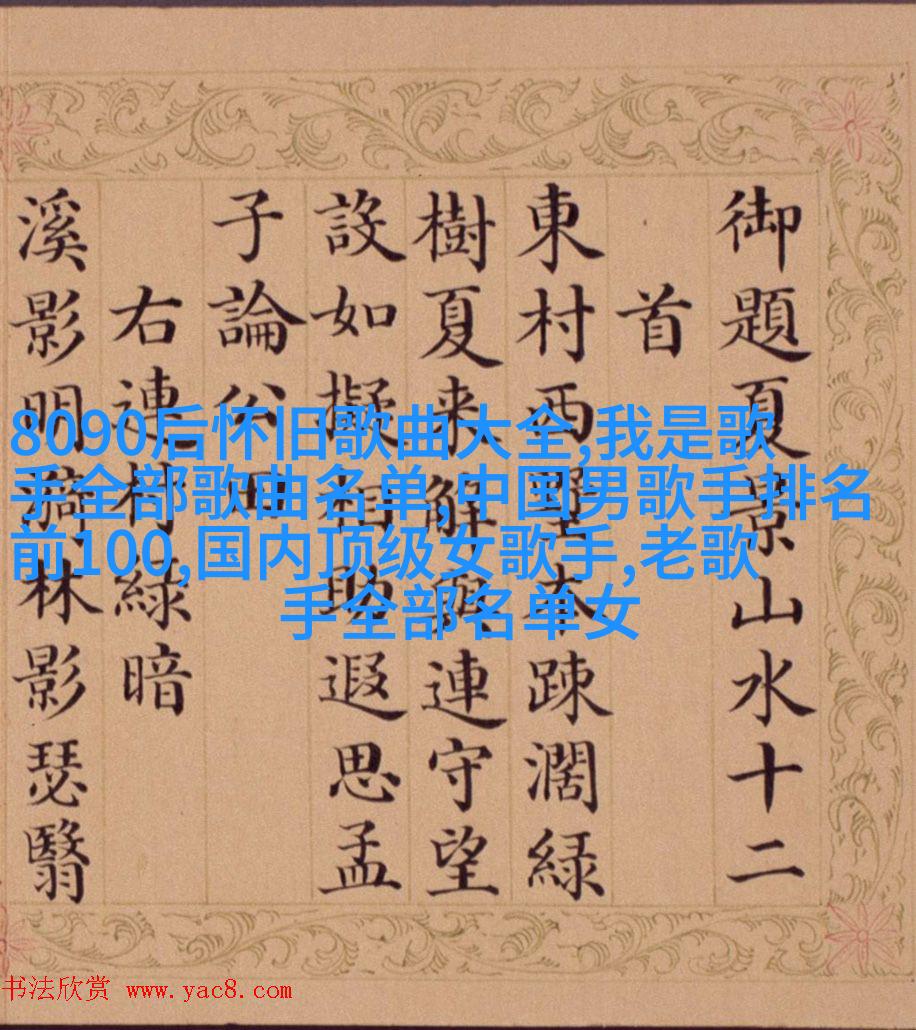 御題夏景山水十二
首
東村西墅本疎濶緑
樹夏来解與連守望
設如擬相助遐思孟
子論公田
右連村緑暗
溪影明漪林影瑟翳
8090后怀旧歌曲大全,我是歌
手全部歌曲名单,中国男歌手排名
前100,国内顶级女歌手,老歌
手全部名单女
书法欣赏 www.yac8.com